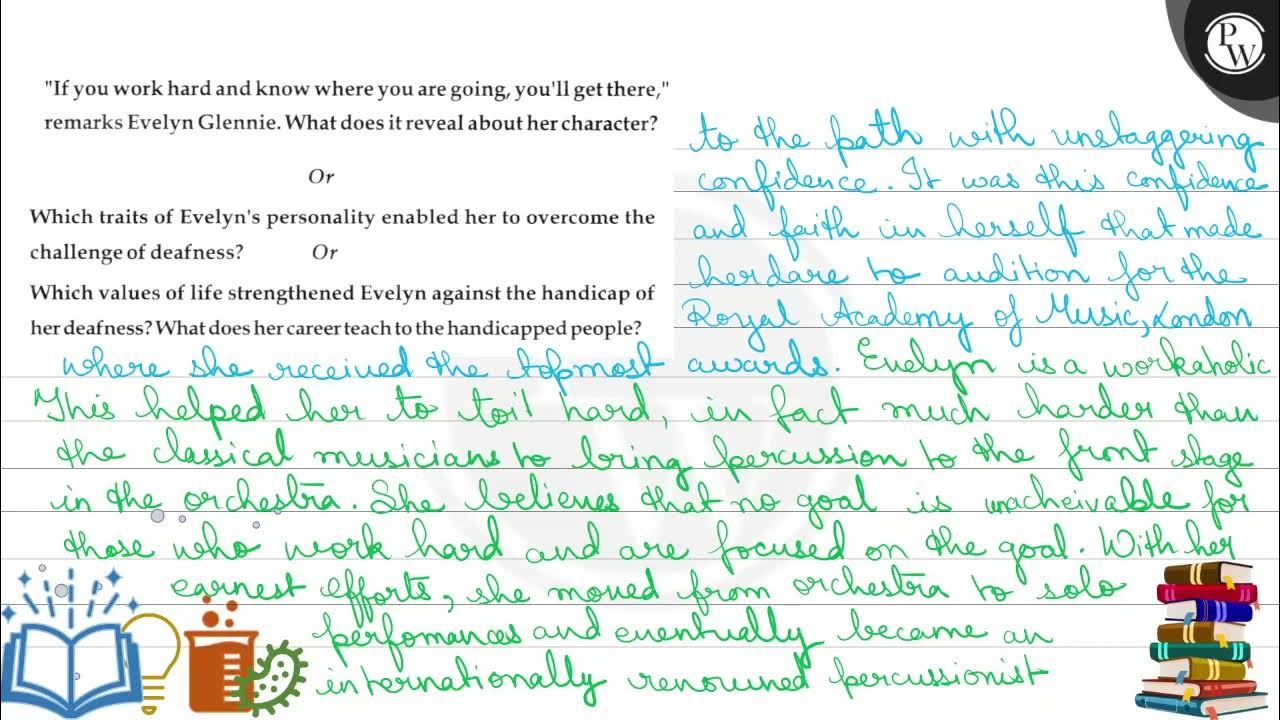 PW
"If you work hard and know where you are going, you'll get there,"
remarks Evelyn Glennie. What does it reveal about her character?
Or
Which traits of Evelyn's personality enabled her to overcome the
challenge of deafness? Or
Which values of life strengthened Evelyn against the handicap of
her deafness? What does her career teach to the handicapped people?
to the path with unstaggering
confidence. It was this confidence
and faith in herself that made
her dare to audition for the
Royal Academy of Music, London
where she received the topmost awards. Evelyn is a workaholic
This helped her to toil hard, in fact much harder than
the classical musicians to bring percussion to the front stage
in the orchestra. She believes that no goal is unacheivable for
those who work hard and are focused on the goal. With her
earnest efforts, she moved from orchestra to solo
perfomances and eventually became an
internationally renowned percussionist